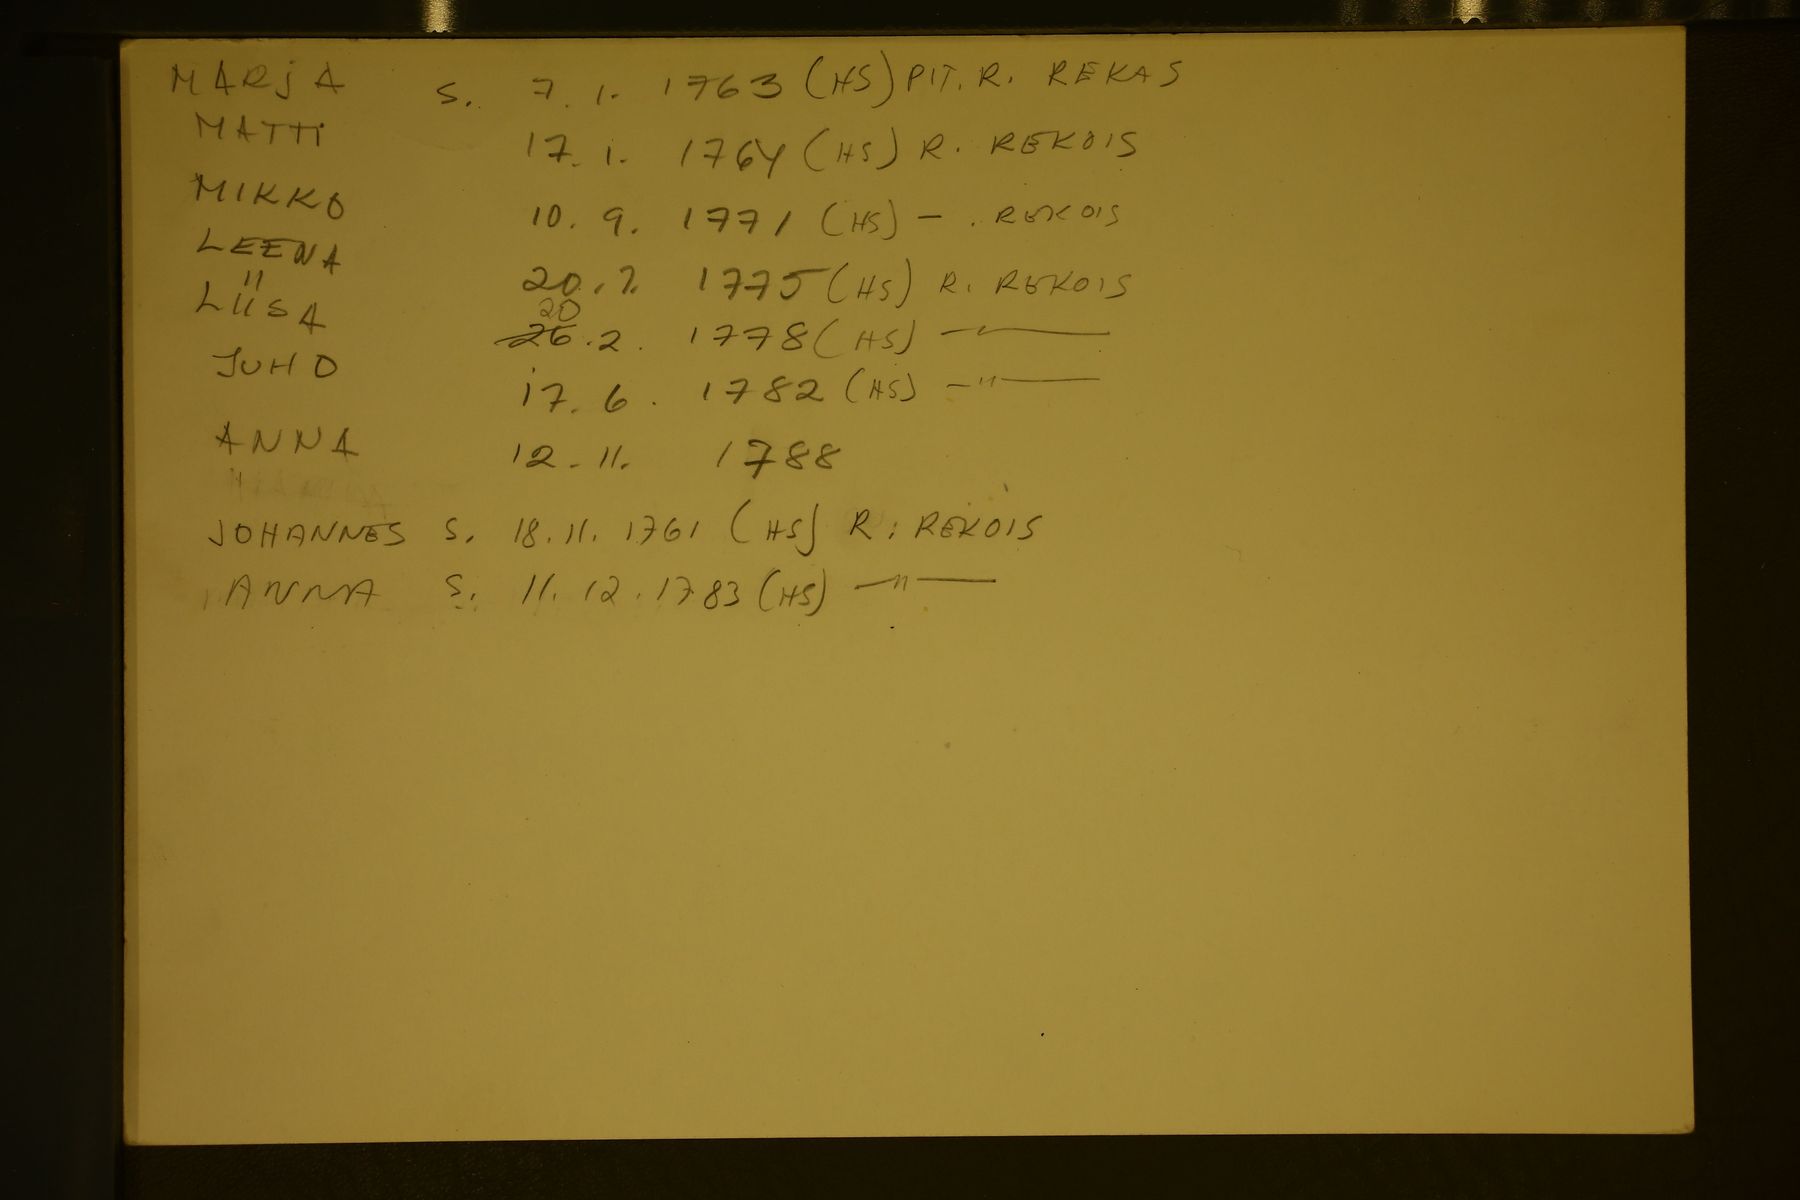 MARJA S. 7. 1. 1763 (HS) PIT. R. REKAS
MATTI 17. 1. 1764 (HS) R. REKOIS
MIKKO 10. 9. 1771 (HS) — . REKOIS
LEENA 20. 7. 1775 (HS) R. REKOIS
"
20
LIISA 26. 2. 1778 (HS) ——
JUHO 17. 6. 1782 (HS) —"——
ANNA 12. 11. 1788
JOHANNES S. 18. 11. 1761 (HS) R: REKOIS
ANNA S. 11. 12. 1783 (HS) —"——